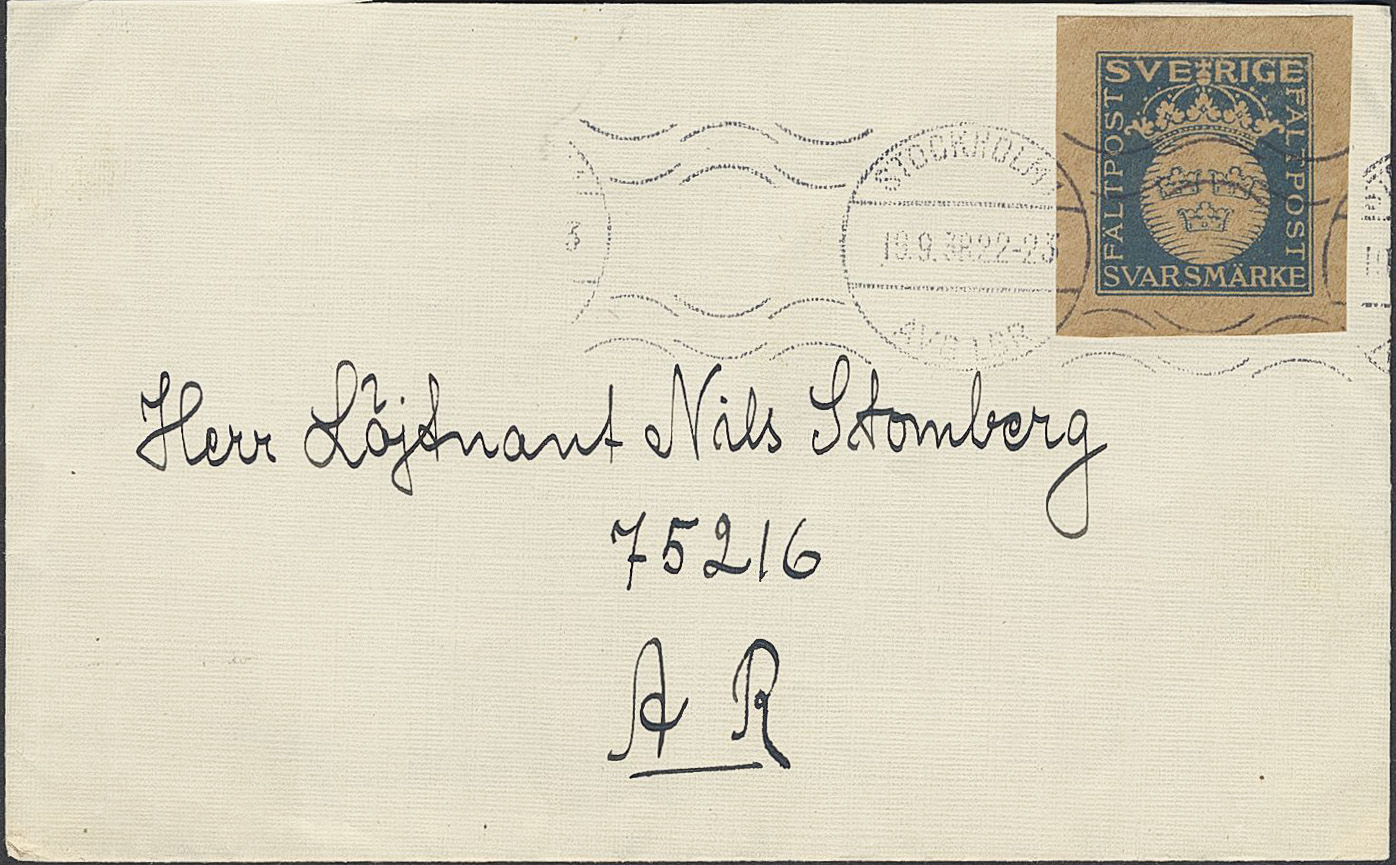 SVERIGE
FÄLTPOST
FÄLTPOST
SVARSMÄRKE
STOCKHOLM 1
19.9.38.22-23
AVG LBR
Herr Löjtnant Nils Stomberg
75216
A R